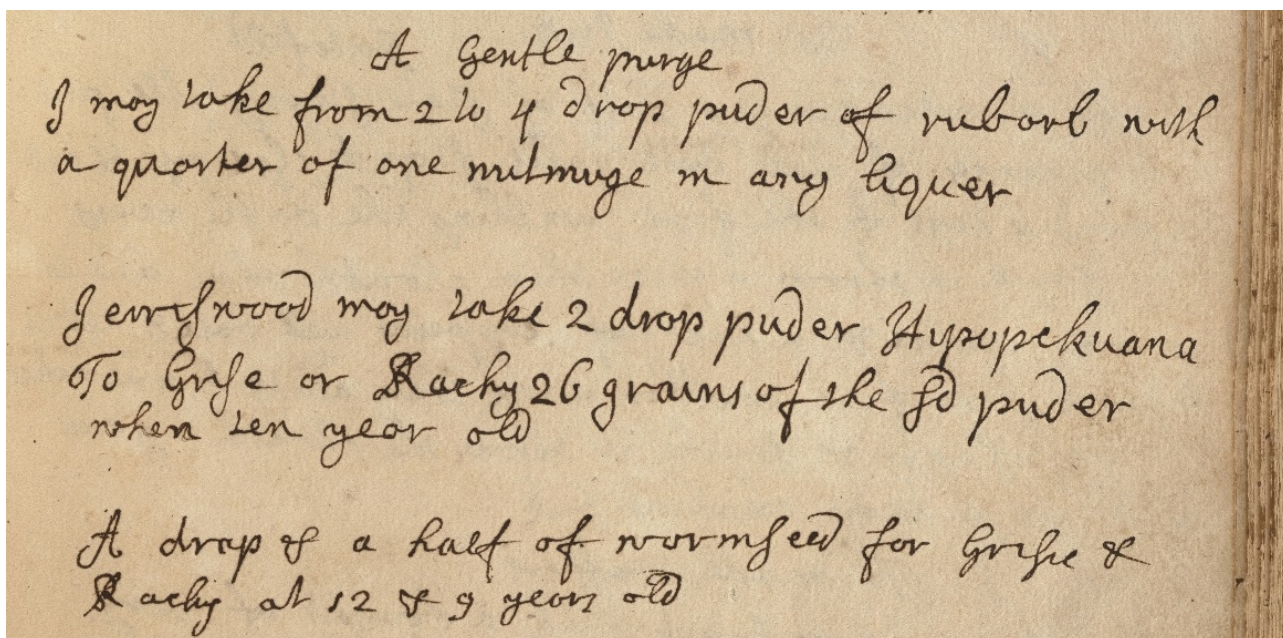 A Gentle purge
I may take from 2 to 4 drop puder of rubarb with
a quarter of one nutmuge in any liquer
Jerrishwood may take 2 drop puder Hypopekuana
To Grise or Rachy 26 grains of the sd puder
when ten year old
A drap & a half of wormseed for Grisie &
Rachy at 12 & 9 years old